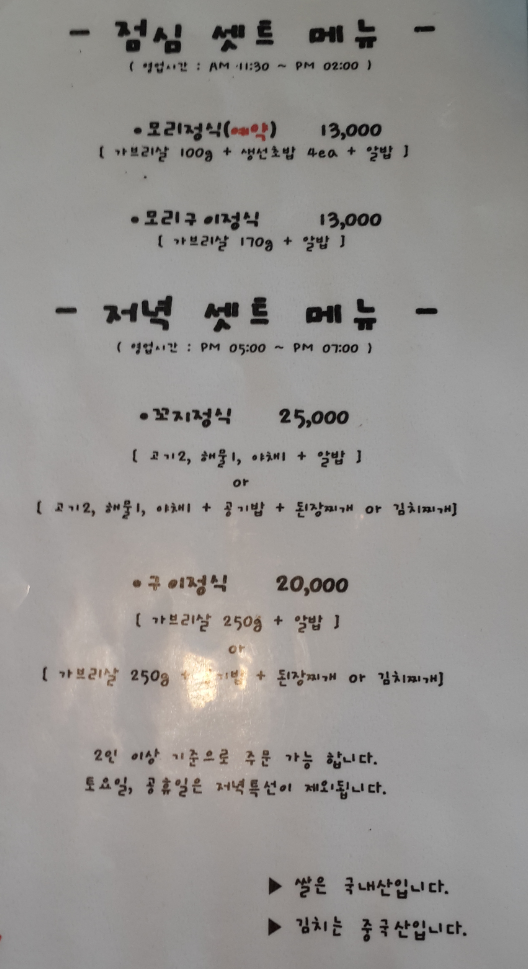 - 점심 셋트 메뉴 -
( 영업시간 : AM 11:30 ~ PM 02:00 )
•모리정식(예약) 13,000
[ 가브리살 100g + 생선초밥 4ea + 알밥 ]
•모리구이정식 13,000
[ 가브리살 170g + 알밥 ]
- 저녁 셋트 메뉴 -
( 영업시간 : PM 05:00 ~ PM 07:00 )
•꼬지정식 25,000
[ 고기2, 해물1, 야채1 + 알밥 ]
or
[ 고기2, 해물1, 야채1 + 공기밥 + 된장찌개 or 김치찌개]
•구이정식 20,000
[ 가브리살 250g + 알밥 ]
or
[ 가브리살 250g + 공기밥 + 된장찌개 or 김치찌개]
2인 이상 기준으로 주문 가능 합니다.
토요일, 공휴일은 저녁특선이 제외됩니다.
▶ 쌀은 국내산입니다.
▶ 김치는 중국산입니다.